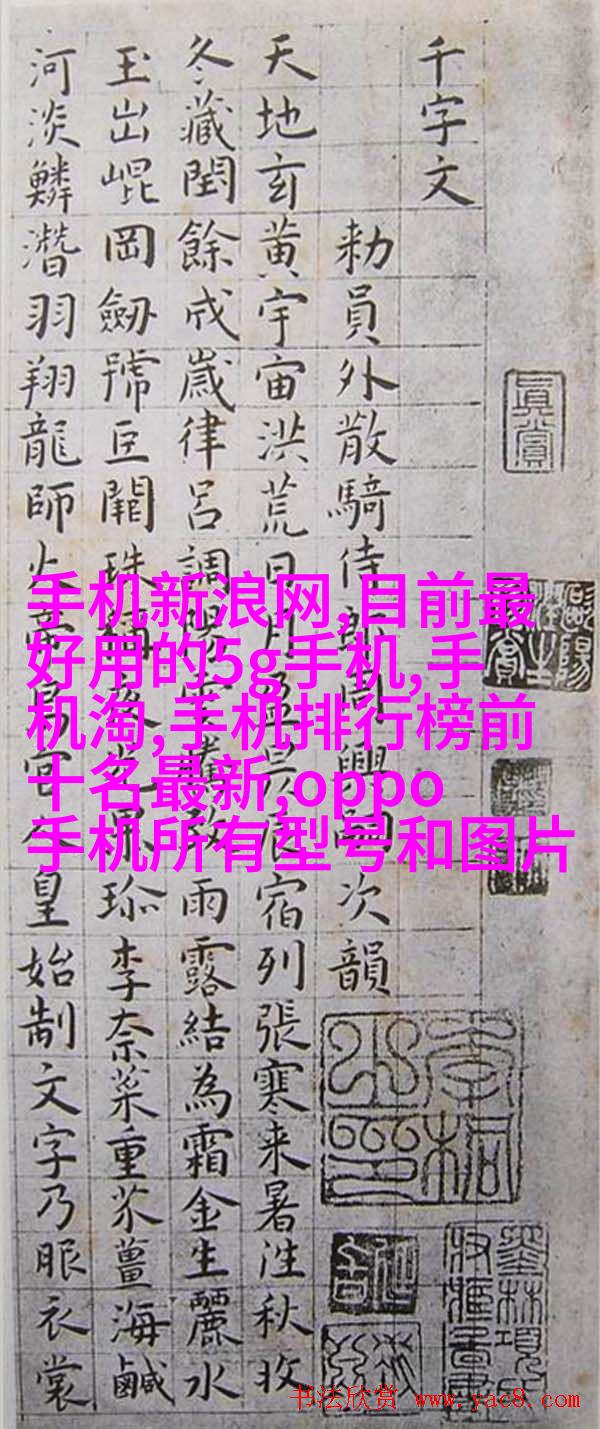 千字文
勑員外散騎侍郎周興嗣次韻
天地玄黃宇宙洪荒日月盈昃辰宿列張寒来暑往秋收
冬藏閏餘成歲律呂調陽雲騰致雨露結為霜金生麗水
玉出崐岡劒號巨闕珠稱夜光菓珎李柰菜重芥薑海鹹
河淡鱗潛羽翔龍師火帝鳥官人皇始制文字乃服衣裳
眞賞
手机新浪网,目前最
好用的5g手机,手
机淘,手机排行榜前
十名最新,oppo
手机所有型号和图片
书法欣赏 www.yac8.com